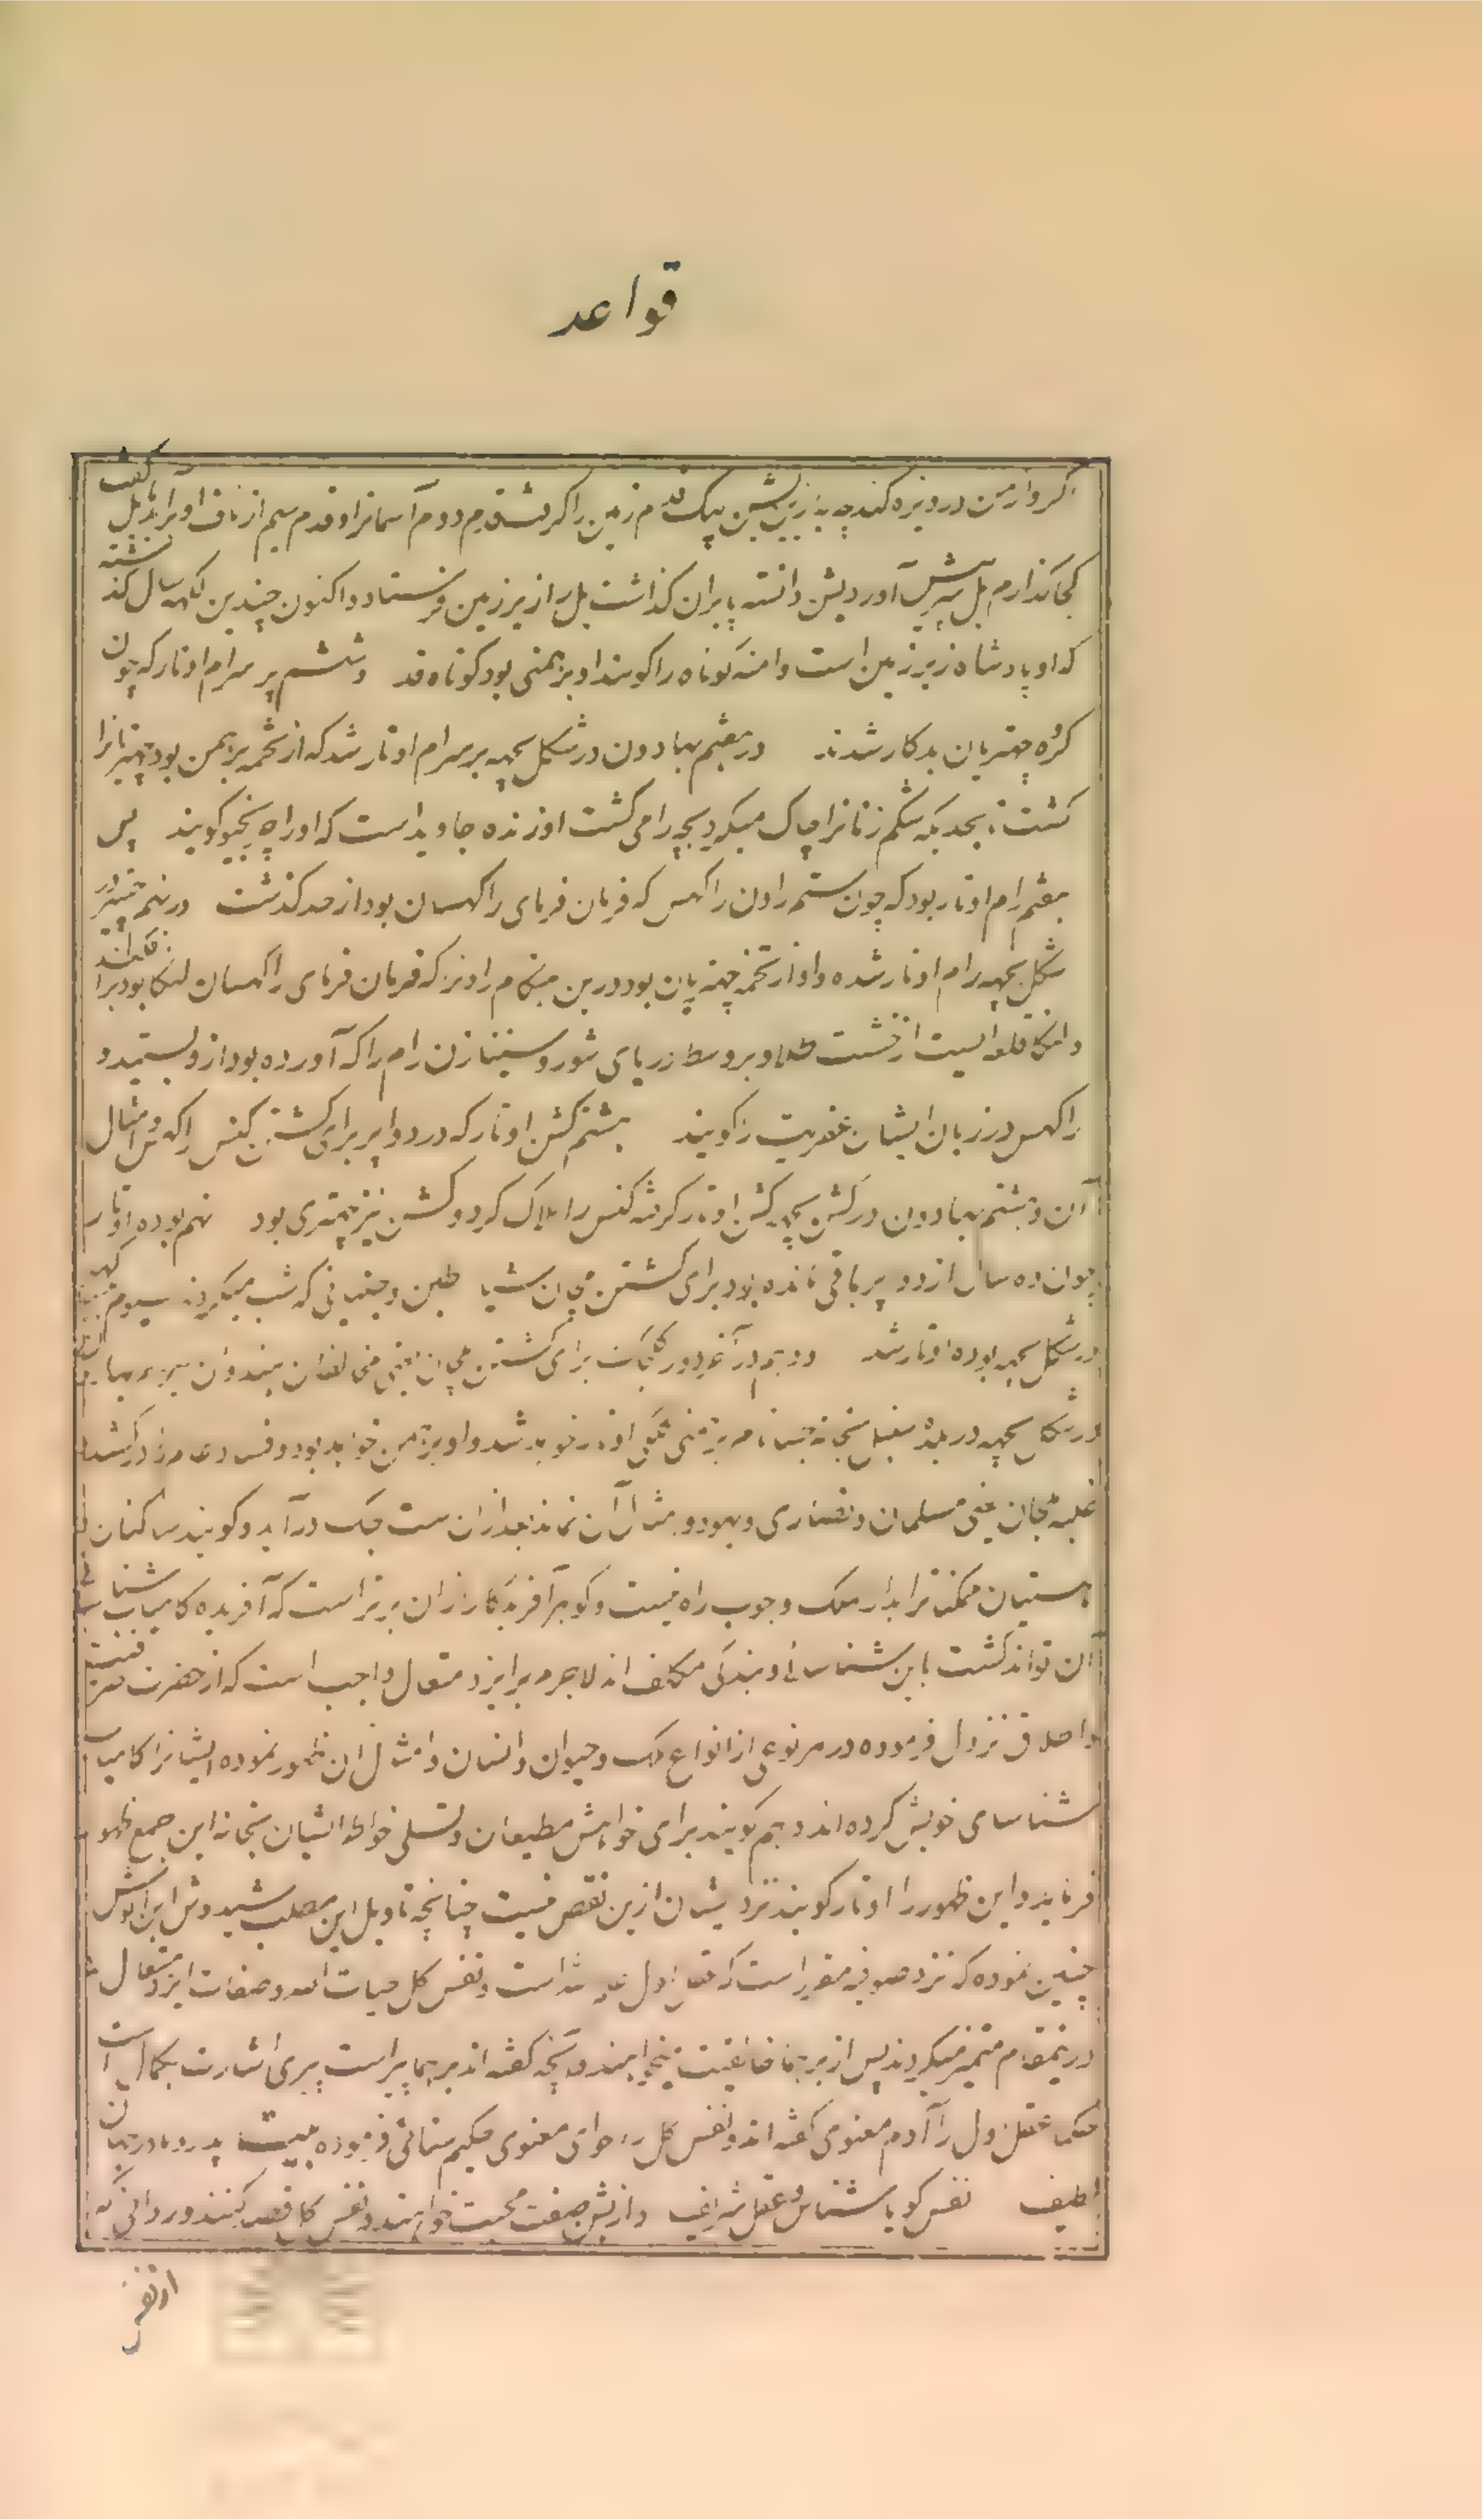 قواعد
گر و از من دریوزه کند چه به زین بشن بیک قدم زمین را گرفت و قدم دوم آسمانرا و قدم سیم از ناف او برآمد بل گفت
کجا گذارم بل سر پیش آورد بشن دانسته پا بران گذاشت بل را زیر زمین فرستاد و اکنون چندین لکهه سال گذشته
که او پادشاه زیر زمین است و امنه کوتاه را گویند او برهمنی بود کوتاه قد و ششم پرسرام اوتار که چون
گروه چهتریان بدکار شدند در هفتم بهادون در شکل پچهه پرسرام اوتار شد که از تخمه برهمن بود چهتریانرا
کشت بحدیکه شکم زنانرا چاک میکرد بچه را می کشت او زنده جاوید است که او را چرنجیو گویند پس
هفتم رام اوتار بود که چون ستم راون راکهس که فرمان فرمای راکهسان بود از حد گذشت در نهم چیتر در
شکل پچهه رام اوتار شده و او از تخمه چهتریان بود درین هنگام راونرا که فرمان فرمای راکهسان لنکا بود برافکند
و لنکا قلعه ایست از خشت طلا و بر وسط دریای شور و سیتا زن رام را که آورده بود ازو بستد و
راکهس در زبان ایشان عفریت را گویند هشتم کشن اوتار که در دواپر برای کشتن کنس راکهس و امثال
آن در هشتم بهادون در کشن پچهه کشن اوتار گرفته کنس را هلاک کرد و کشن نیز چهتری بود نهم بوده اوتار
چون ده سال از دواپر باقی مانده بود برای کشتن شیاطین و جنیانی که شب میگردند سیوم
در شکل پچهه بوده اوتار شد دهم در آخر دور کلجگ برای کشتن ملیچان یعنی مخالفان هندوان
در شکل پچهه در بلده سنبل بخانه جسا نام برهمنی کلکی اوتار خواهد شد و او برهمن خواهد بود و فساد عالم
غلبه ملیچان یعنی مسلمان و نصاری و یهود و امثال آن نماند بعد ازان ست جگ درآید و گویند ساکنان
هستیان ممکنات را بدار ملک وجوب راه نیست و گوهر آفریدگار ازان برتر است که آفریده کامیاب شناسائی
آن تواند گشت باین شناسائی و بندگی مکلف اند لاجرم بر ایزد متعال واجب است که از حضرت صرافت
و اطلاق نزول فرموده در هر نوعی از انواع ملک و حیوان و انسان و امثال آن ظهور نموده ایشانرا کامیاب
شناسای خویش کرده اند و هم گویند برای خواهش مطیعان و تسلی خواطر ایشان بخانه این جمع ظهور
فرماید و این ظهور را اوتار گویند نزد ایشان ازین نقص نیست چنانچه تاویل این مطلب شیدوش ابن انوش
چنین نموده که نزد صوفیه مقرر است که عقل اول علم خداست و نفس کل حیات الله و صفات ایزد متعال
درینمقام متمیز میگردند پس از برهما خالقیت میخواهند و آنچه گفته اند برهما پیر است پیری اشارت بکمال است
حکما عقل اول را آدم معنوی گفته اند و نفس کل را حوای معنوی حکیم سنائی فرموده بیت پدر و مادر جهان
لطیف نفس گویا شناس و عقل شریف و از بشن صفت محبت خواهند و نفس کل قصد کنند و روانی که
از نفس